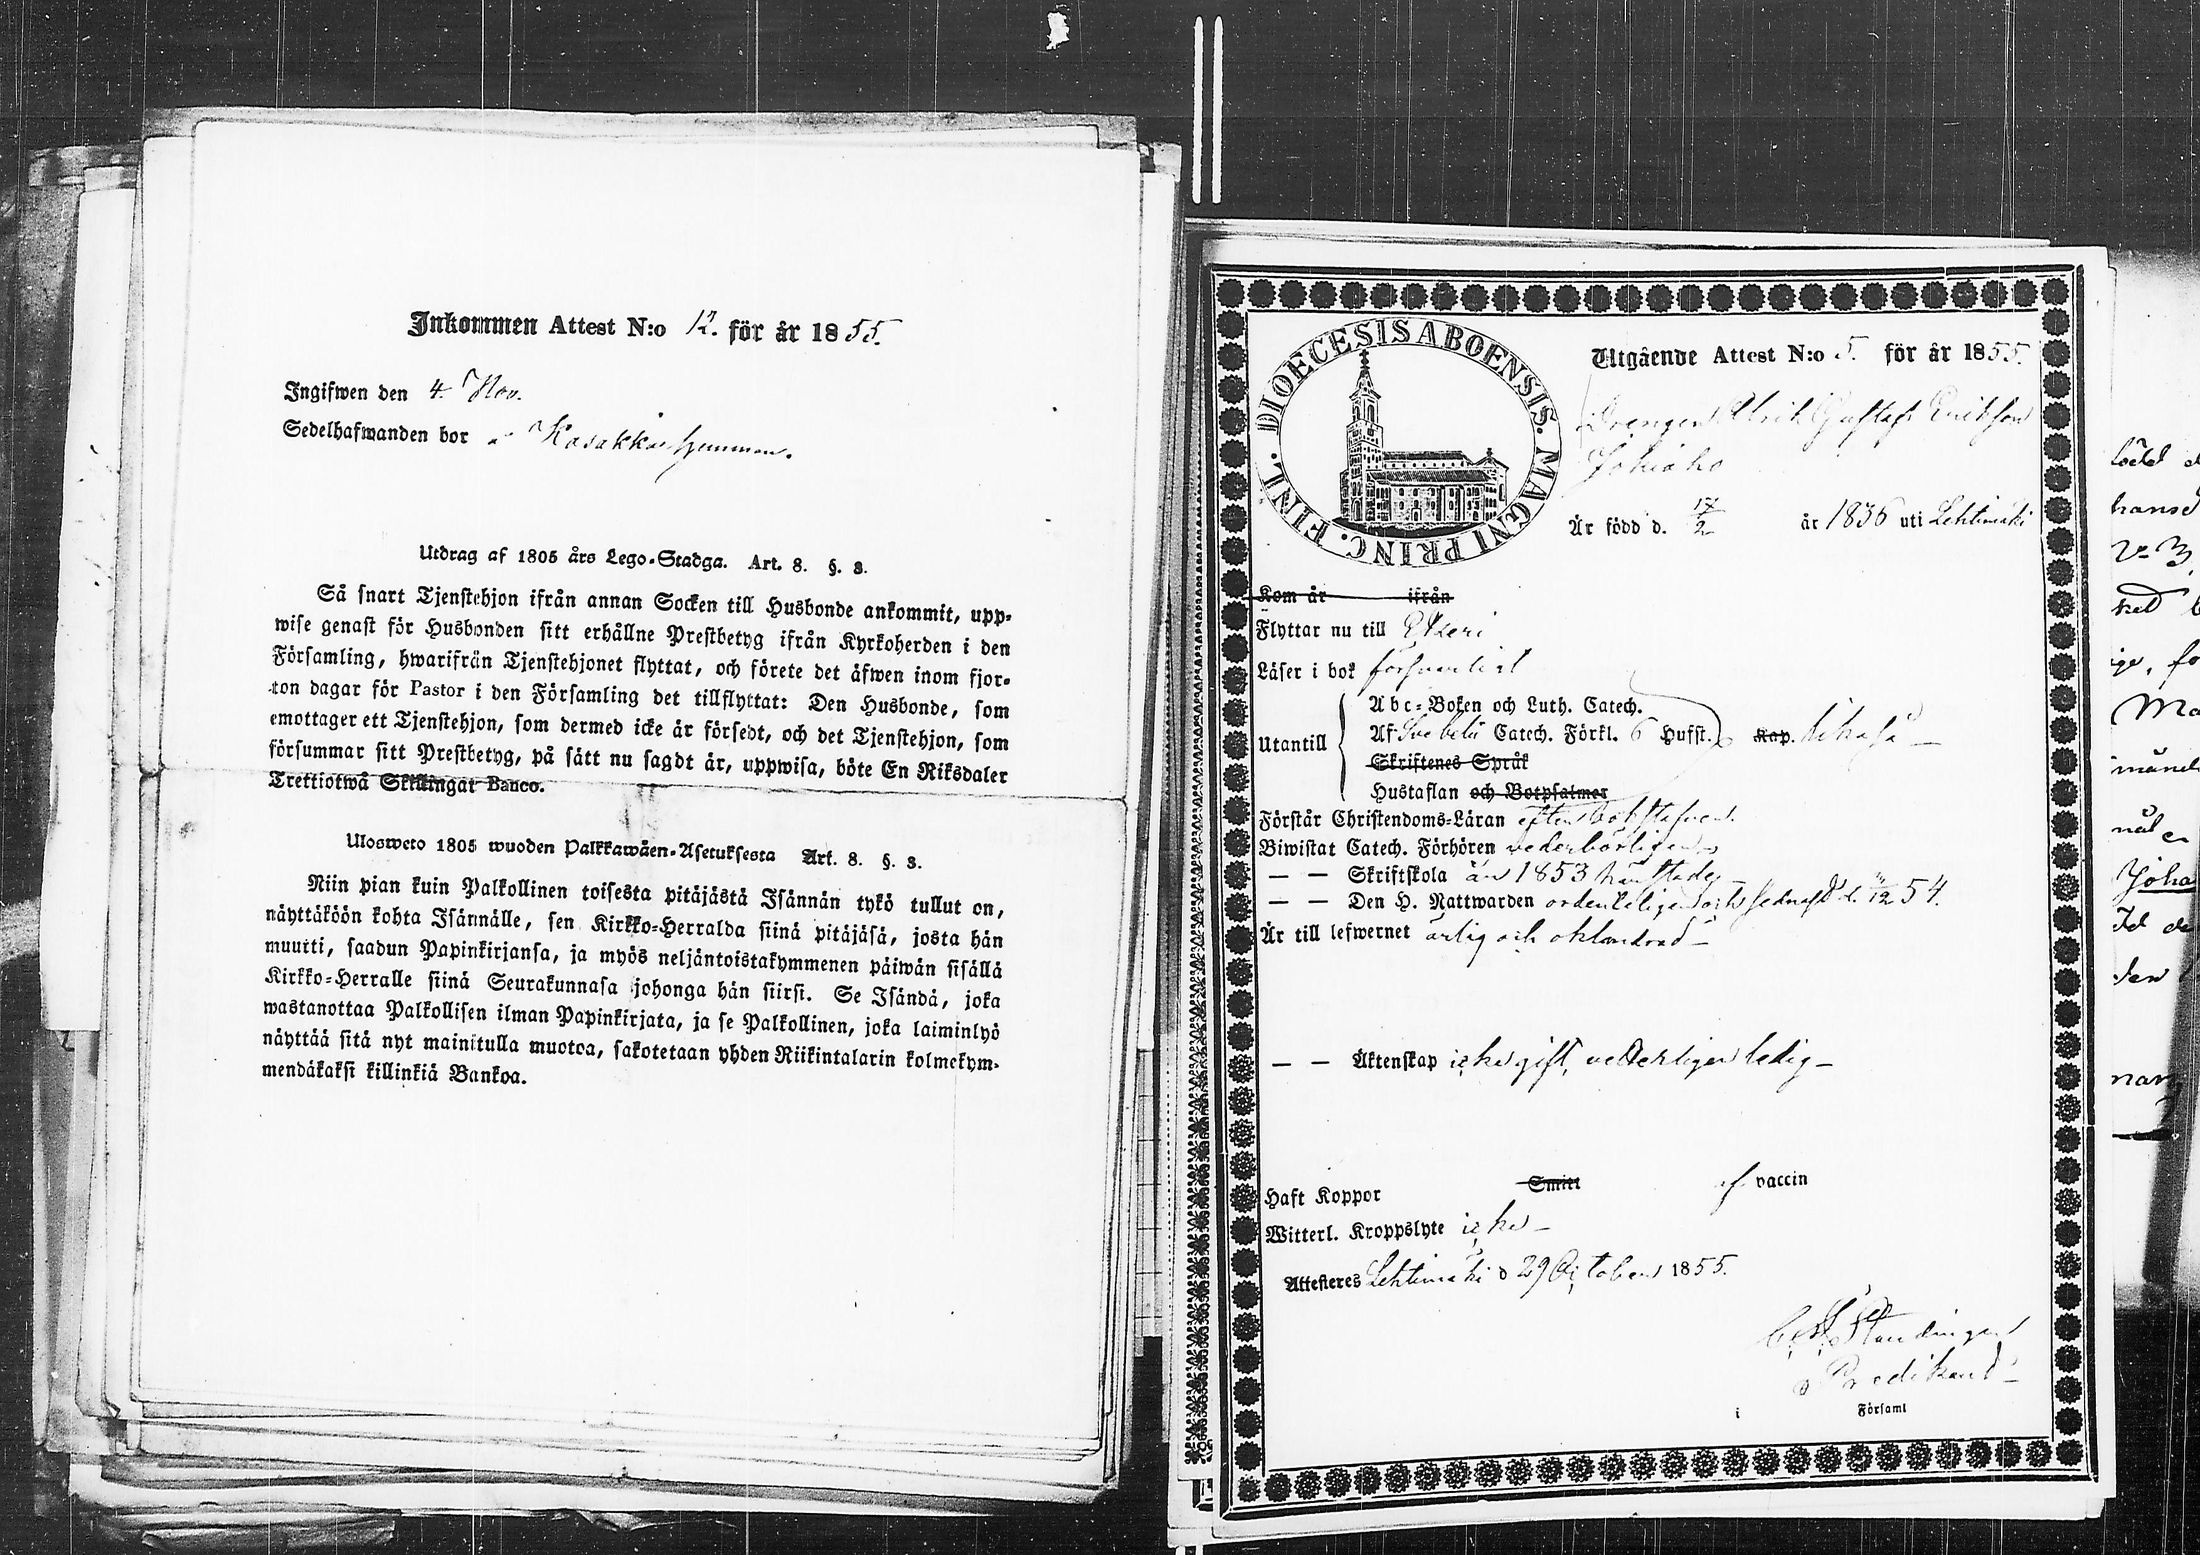 Inkommen Attest N:o 12. för år 1855.
Ingifwen den 4. Nov.
Sedelhafwanden bor å Kasakka hemman.
Utdrag af 1805 års Lego-Stadga. Art. 8. §. 8.
Så snart Tjenstehjon ifrån annan Socken till Husbonde ankommit, upp-
wise genast för Husbonden sitt erhållne Prestbetyg ifrån Kyrkoherden i den
Församling, hwarifrån Tjenstehjonet flyttat, och förete det äfwen inom fjor-
ton dagar för Pastor i den Församling det tillflyttat: Den Husbonde, som
emottager ett Tjenstehjon, som dermed icke är försedt, och det Tjenstehjon, som
försummar sitt Prestbetyg, på sätt nu sagdt är, uppwisa, böte En Riksdaler
Trettiotwå Skillingar Banco.
Ulosweto 1805 wuoden Palkkawäen-Asetuksesta Art. 8. §. 8.
Niin pian kuin Palkollinen toisesta pitäjästä Isännän tykö tullut on,
näyttäköön kohta Isännälle, sen Kirkko-Herralda siinä pitäjäsä, josta hän
muutti, saadun Papinkirjansa, ja myös neljäntoistakymmenen päiwän sisällä
Kirkko-Herralle siinä Seurakunnasa johonga hän siirsi. Se Isändä, joka
wastanottaa Palkollisen ilman Papinkirjata, ja se Palkollinen, joka laiminlyö
näyttää sitä nyt mainitulla muotoa, sakotetaan yhden Riikintalarin kolmekym-
mendäkaksi killinkiä Bankoa.
DIOECESIS ABOENSIS. MAGNI PRINC. FINL.
Utgående Attest N:o 5. för år 1855.
Drengen Ulrik Gustaf Erikson
Är född d. 17/2 år 1836 uti Lehtimäki
Kom år ifrån
Flyttar nu till Etseri
Läser i bok försvarligt
Abc-Boken och Luth. Catech.
Utantill Af Svebelii Catech. Förkl. 6 Hufst. Kap. likaså
Skriftenes Språk
Hustaflan och Botpsalmer
Förstår Christendoms-Läran efter bokstafven.
Biwistat Catech. Förhören vederbörligen
— — Skriftskola år 1853
— — Den H. Nattwarden ordenteligen och sednast d. 54.
Är till lefwernet ärlig och oklandrad
— — Äktenskap icke gift, ledig
Haft Koppor Smitt af vaccin
Witterl. Kroppslyte icke
Attesteres Lehtimäki d 29 October 1855.
Predikant
i Församl